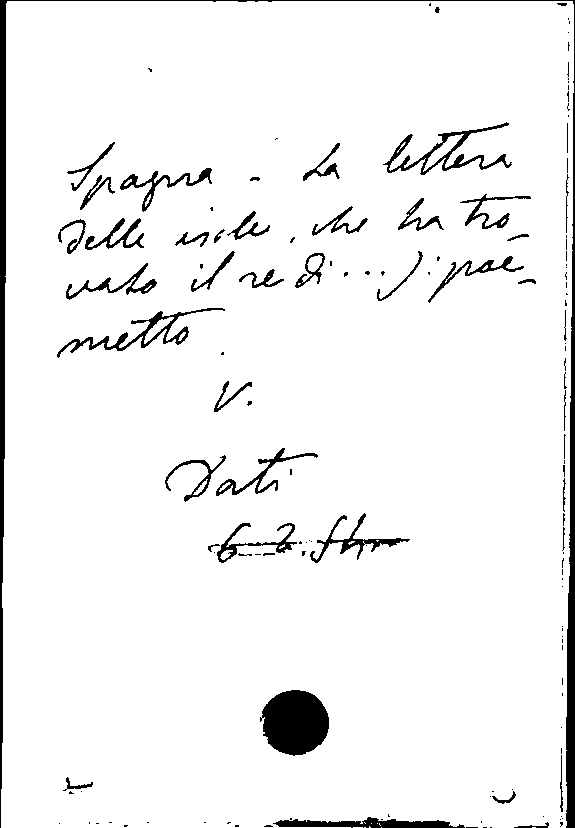 Spagna - La lettera
delle isole, che ha tro-
vato il re di ...): poe-
metto
V.
Dati